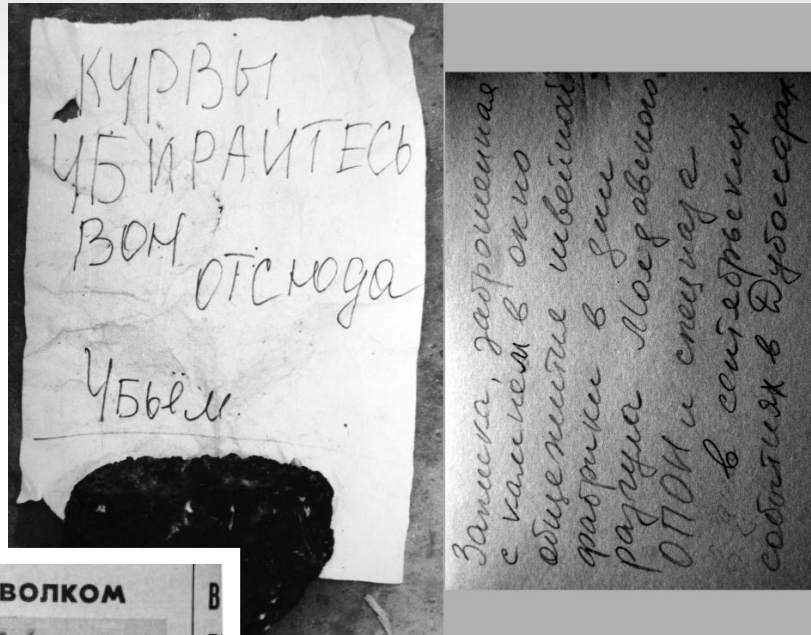 КУРВЫ
УБИРАЙТЕСЬ
ВОН
ОТСЮДА
Убьём
Записка, заброшенная
с камнем в окно
общежитие швейной
фабрики в дни
разгула Молдавского
ОПОН и спецназа
в сентябрьских
событиях в Дубоссарах
ВОЛКОМ
В